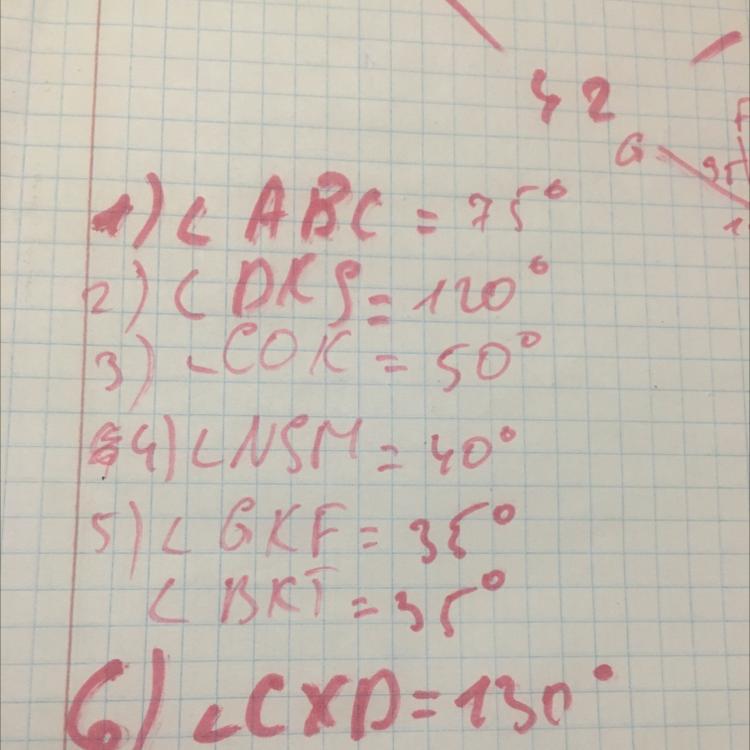 42
G
35
1) ∠ ABC = 75°
2) ∠ DKS = 120°
3) ∠COK = 50°
4) ∠NSM = 40°
5) ∠ GKF = 35°
∠ BKT = 35°
6) ∠CXD = 130°